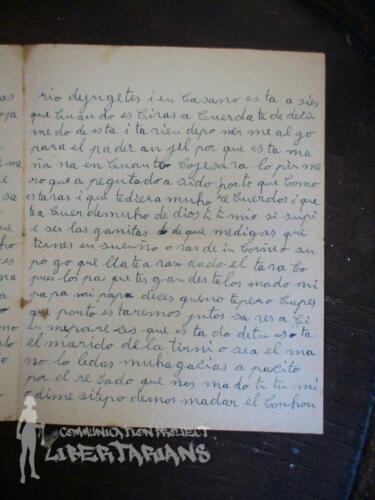 rio dejugetes i en Casano esta a sies
que Cuando es Ciras a Cuerda te de
me do de esta i ta vien depo ner me al go
para el pa der an jel por que es ta ma
ña na en Cuanto Cojesara lo pir me
ro que a pegutado a sido por to que Como
estaras i que te diera muho re Cuerdos i que
te a Cuer de muho de dios ti ti mio si supi
e ses las ganitas de que me digas que
tienes un sueniño o ras de un Coriño su
po go que lla te a ran el ta ra Co
pues los pa que tes gan des te los mado mi
papa mi papa dices gueno tepero Cupes
que ponto es taremos jutos sa res a Ci
es que es ta do de tu es ta
el marido de la tirni o sea el ma
no lo le das muha gacias a pacito
por el re Cado que nos mado ti tu mi
dime si tepo demos madar el Conhou
COMMUNICATION PROJECT
LIBERTARIANS